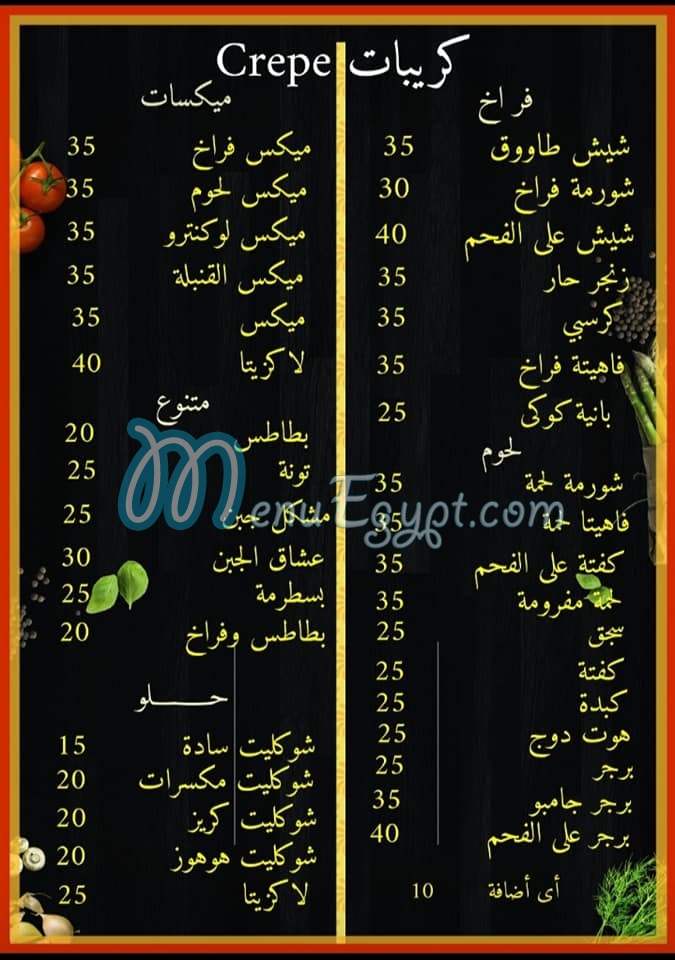 كريبات Crepe
فراخ
شيش طاووق 35
شورمة فراخ 30
شيش على الفحم 40
زنجر حار 35
كرسبي 35
فاهيتة فراخ 35
بانية كوكى 25
لحوم
شورمة لحمة 35
فاهيتا لحمة 35
كفتة على الفحم 35
لحمة مفرومة 35
سجق 25
كفتة 25
كبدة 25
هوت دوج 25
برجر 25
برجر جامبو 35
برجر على الفحم 40
أى أضافة 10
ميكسات
ميكس فراخ 35
ميكس لحوم 35
ميكس لوكنترو 35
ميكس القنبلة 35
ميكس 35
لاكزيتا 40
متنوع
بطاطس 20
تونة 25
مشاكل جبن 25
عشاق الجبن 30
بسطرمة 25
بطاطس وفراخ 20
حلو
شوكليت سادة 15
شوكليت مكسرات 20
شوكليت كريز 20
شوكليت هوهوز 20
لاكزيتا 25
MenuEgypt.com